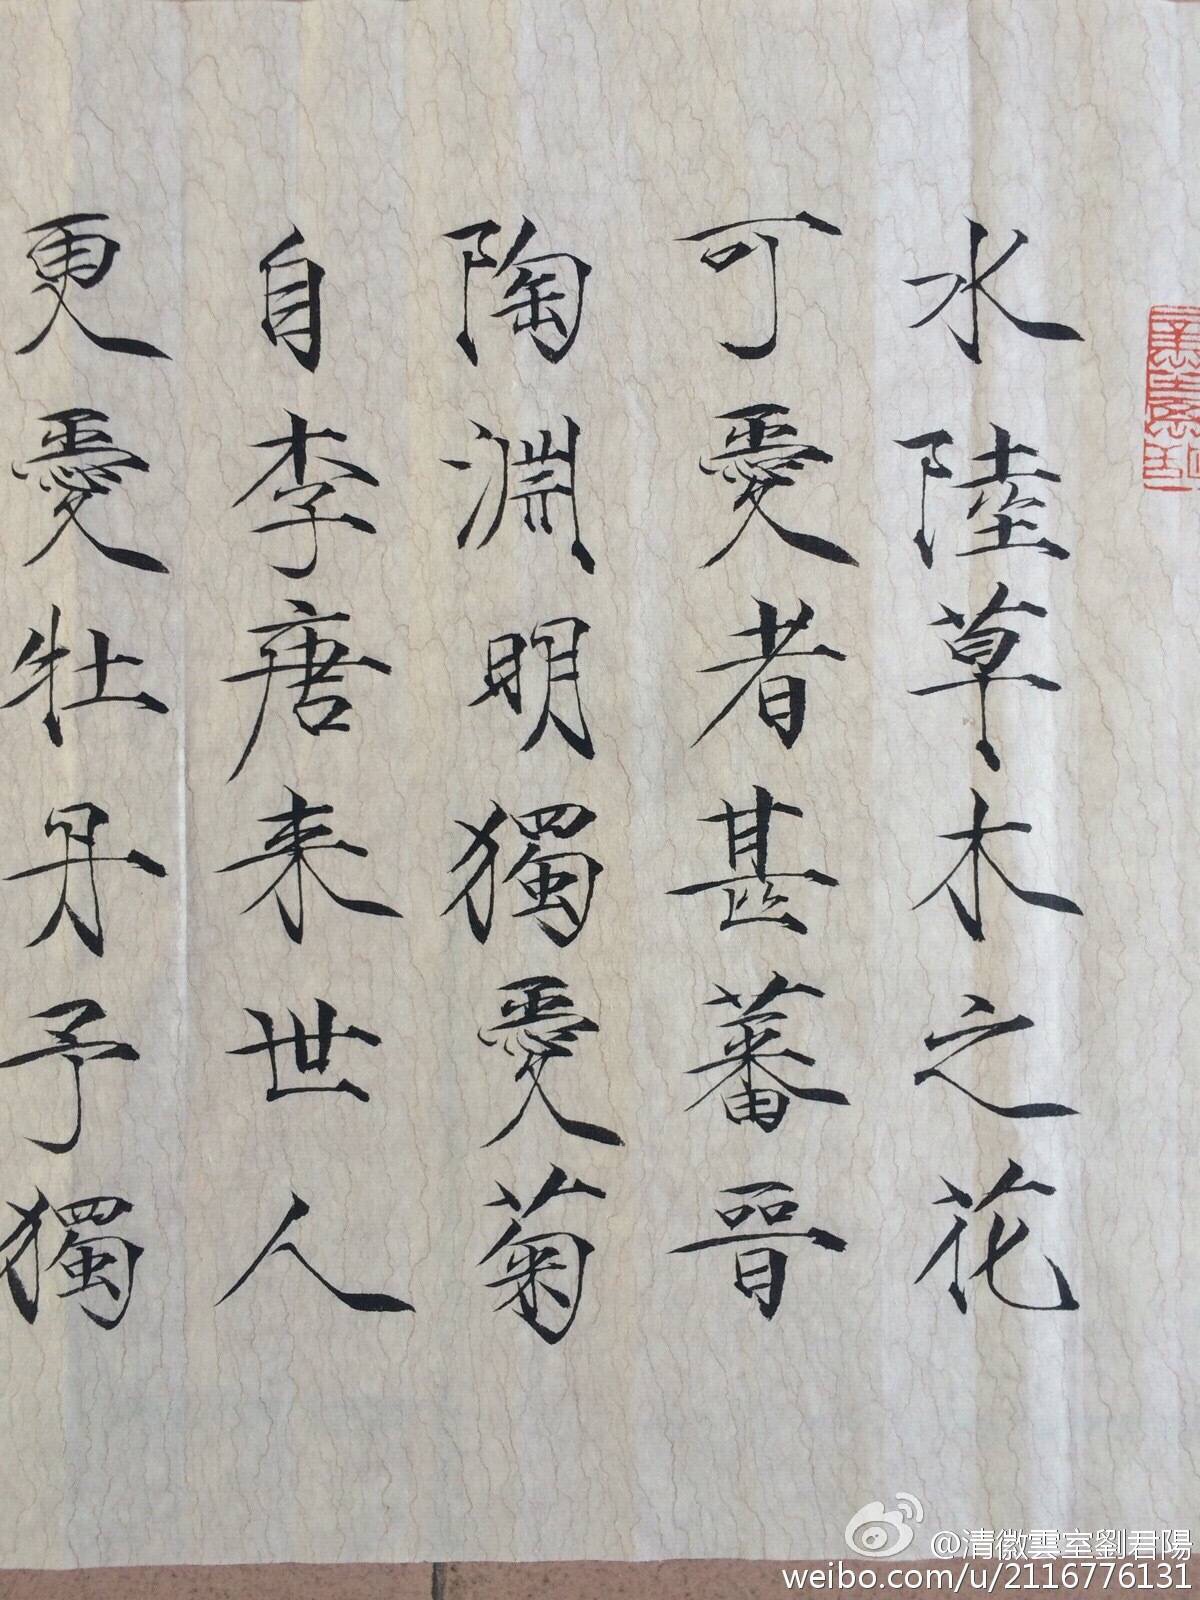 水陸草木之花
可愛者甚蕃晉
陶淵明獨愛菊
自李唐来世人
更愛牡丹予獨
@清徽雲室劉君陽
weibo.com/u/2116776131